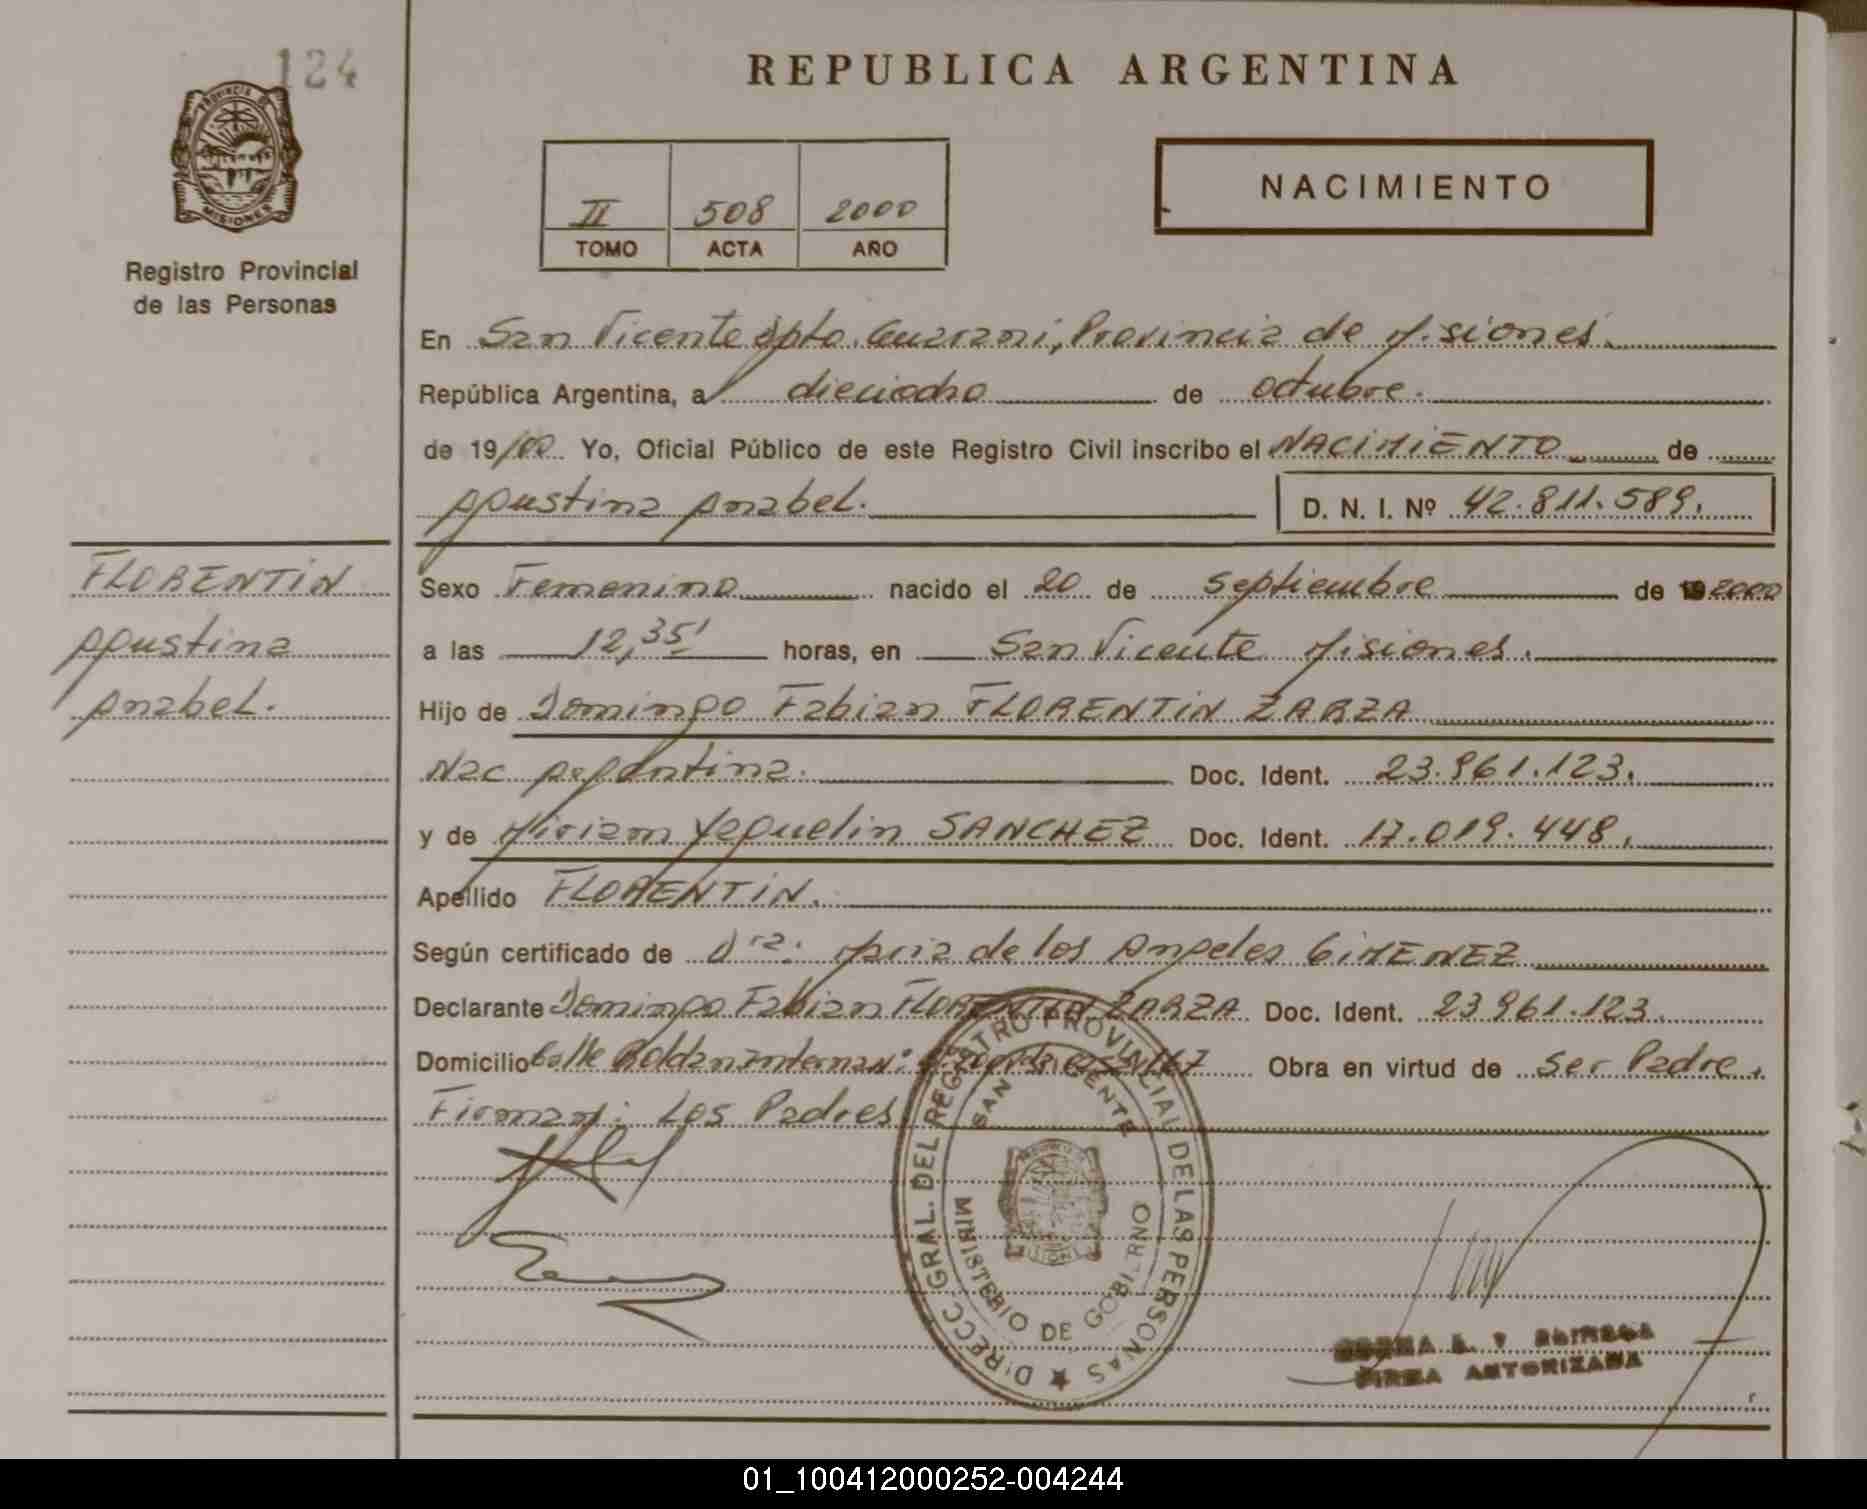 124
REPUBLICA ARGENTINA
PROVINCIA DE
MISIONES
Registro Provincial
de las Personas
II 508 2000
TOMO ACTA AÑO
NACIMIENTO
En San Vicente Dpto. Guarani, Provincia de Misiones.
República Argentina, a dieciocho de octubre.
de 19/00 Yo, Oficial Público de este Registro Civil inscribo el NACIMIENTO de
Agustina Anabel. D. N. I. Nº 42.811.589.
FLORENTIN
Agustina
Anabel.
Sexo Femenino nacido el 20 de Septiembre de 19 2000
a las 12,35' horas, en San Vicente Misiones.
Hijo de Domingo Fabian FLORENTIN ZARZA
Nac Argentina. Doc. Ident. 23.961.123.
y de Miriam Yaquelin SANCHEZ Doc. Ident. 17.019.448.
Apellido FLORENTIN.
Según certificado de Dra. Maria de los Angeles GIMENEZ
Declarante Domingo Fabian FLORENTIN ZARZA Doc. Ident. 23961.123.
Domicilio Calle Roldan Obra en virtud de Ser Padre.
Firman: Los Padres
DIRECC. GRAL. DEL REGISTRO PROVINCIAL DE LAS PERSONAS
SAN VICENTE
MINISTERIO DE GOBIERNO
FIRMA AUTORIZADA
01_100412000252-004244